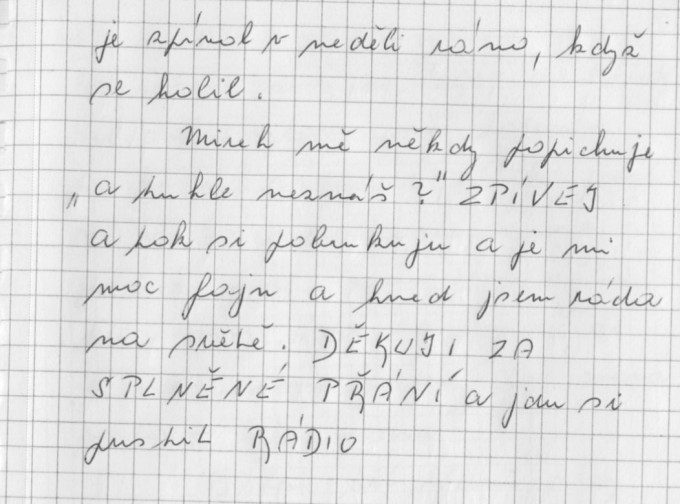 je zpíval v neděli ráno, když
se holil.
Mirek mě někdy popichuje
„a tuhle neznáš?" ZPÍVEJ
a pak si pobrukuju a je mi
moc fajn a hned jsem ráda
na světě. DĚKUJI ZA
SPLNĚNÉ PŘÁNÍ a jdu si
pustit RÁDIO